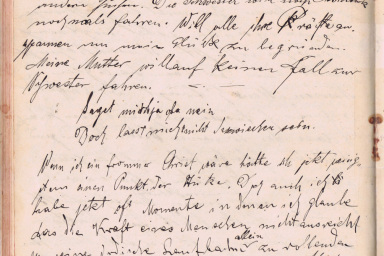 nochmals fahren. Will alle ihre Kräfte an-
spannen um mein Glück zu begründen.
Meine Mutter will auf keinen Fall zur
Schwester fahren.
Saget mich ja da nein
Doch lasst mich nicht
Wenn ich ein frommer Christ wäre hätte ich jetzt
einen Punkt der Stütze. Doch auch ich
habe jetzt oft Momente in denen ich glaube
dass die Kraft eines Menschen nicht ausreicht
allein
seine irdische Laufbahn zu vollenden